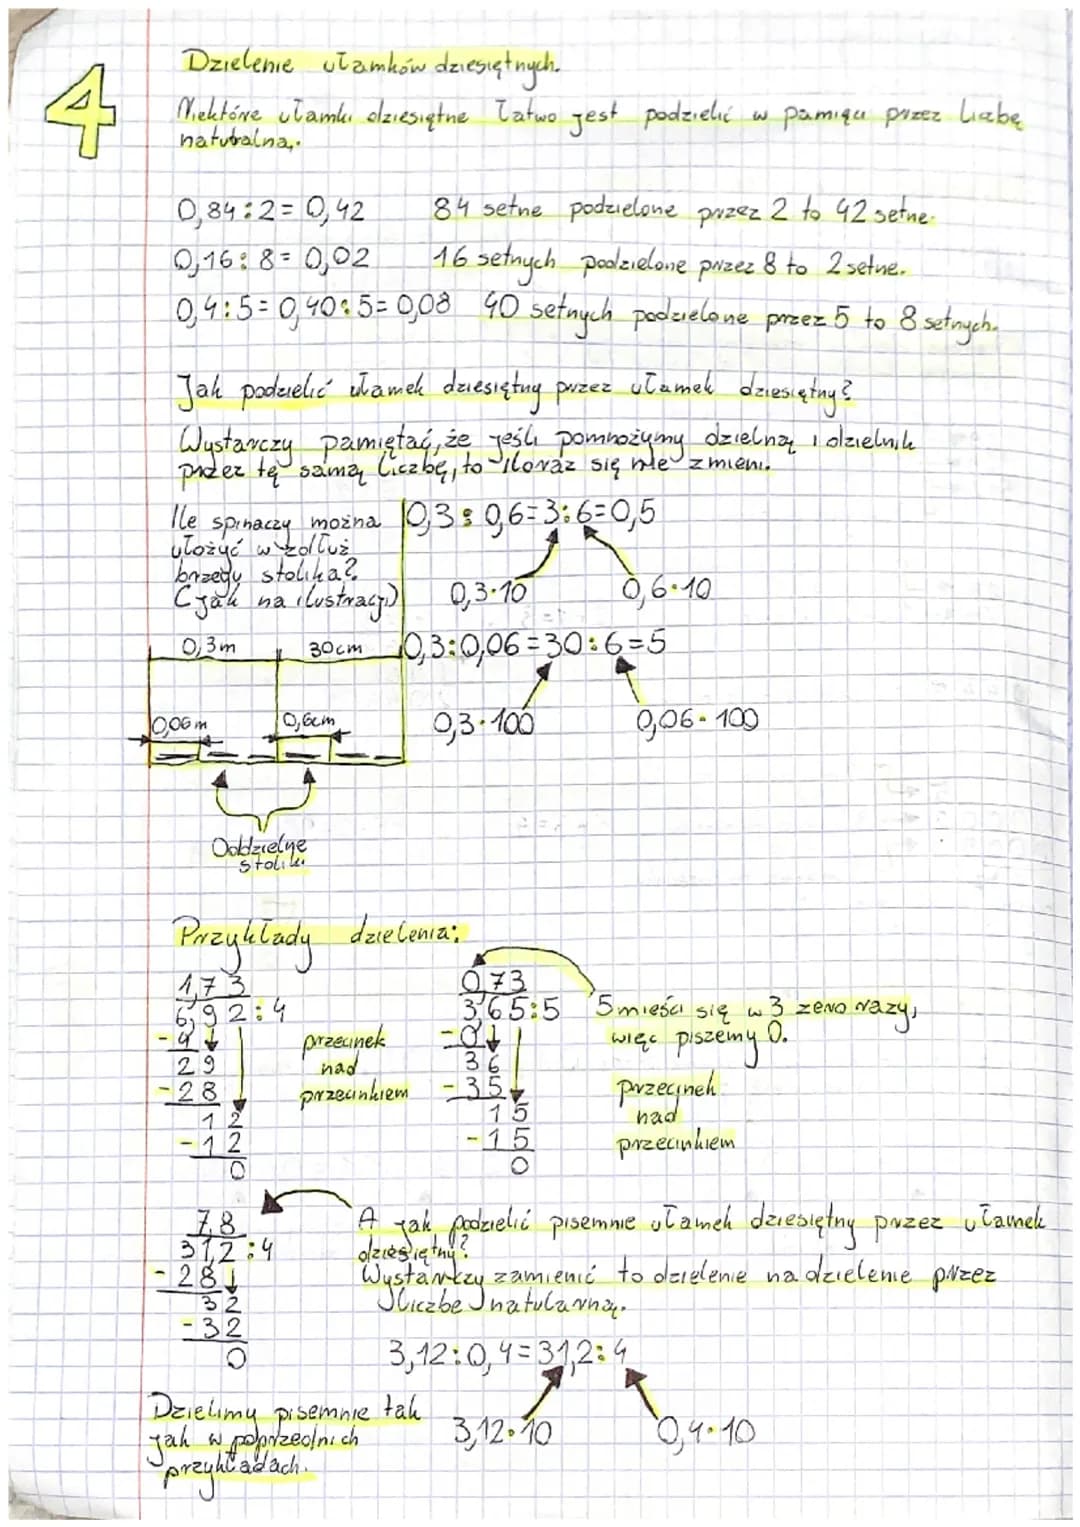 4
Dzielenie ułamków dziesiętnych.
Niektóre ułamki dziesiętne łatwo jest podzielić w pamięci przez liczbę
naturalną.
0,84:2=0,42 84 setne podzielone przez 2 to 42 setne.
0,16:8=0,02 16 setnych podzielone przez 8 to 2 setne.
0,4:5=0,40:5=0,08 40 setnych podzielone przez 5 to 8 setnych.
Jak podzielić ułamek dziesiętny przez ułamek dziesiętny?
Wystarczy pamiętać, że jeśli pomnożymy dzielną i dzielnik
przez tę samą liczbę, to iloraz się nie zmieni.
Ile spinaczy można
ułożyć wzdłuż
brzegu stolika?
(jak na ilustracji)
0,3:0,6=3:6=0,5
0,3·10 0,6·10
0,3m 30cm
0,3:0,06=30:6=5
0,06m 0,6cm
0,3·100 0,06·100
Oddzielne
stoliki
Przykłady dzielenia:
1,73
6,92:4
-4
29
-28
12
-12
0
przecinek
nad
przecinkiem
0,73
3,65:5
-0
36
-35
15
-15
0
5 mieści się w 3 zero razy,
więc piszemy 0.
przecinek
nad
przecinkiem
7,8
31,2:4
-28
32
-32
0
A jak podzielić pisemnie ułamek dziesiętny przez ułamek
dziesiętny?
Wystarczy zamienić to dzielenie na dzielenie przez
liczbę natularną.
3,12:0,4=31,2:4
3,12·10 0,4·10
Dzielimy pisemnie tak
jak w poprzednich
przykładach.